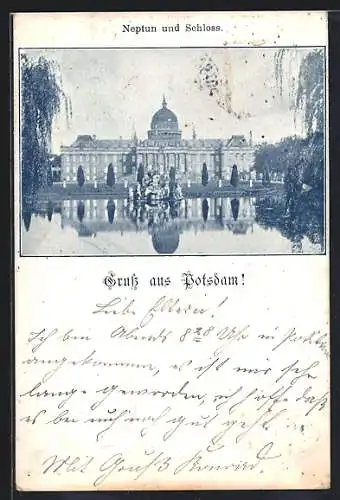 Neptun und Schloss.
Gruß aus Potsdam!
Liebe Eltern!
Ich bin Abends 8 28 Uhr in Potsdam
angekommen, es ist mir sehr
lange geworden, ich hoffe daß
es bei euch noch gut geht.
Mit Gruß Konrad.